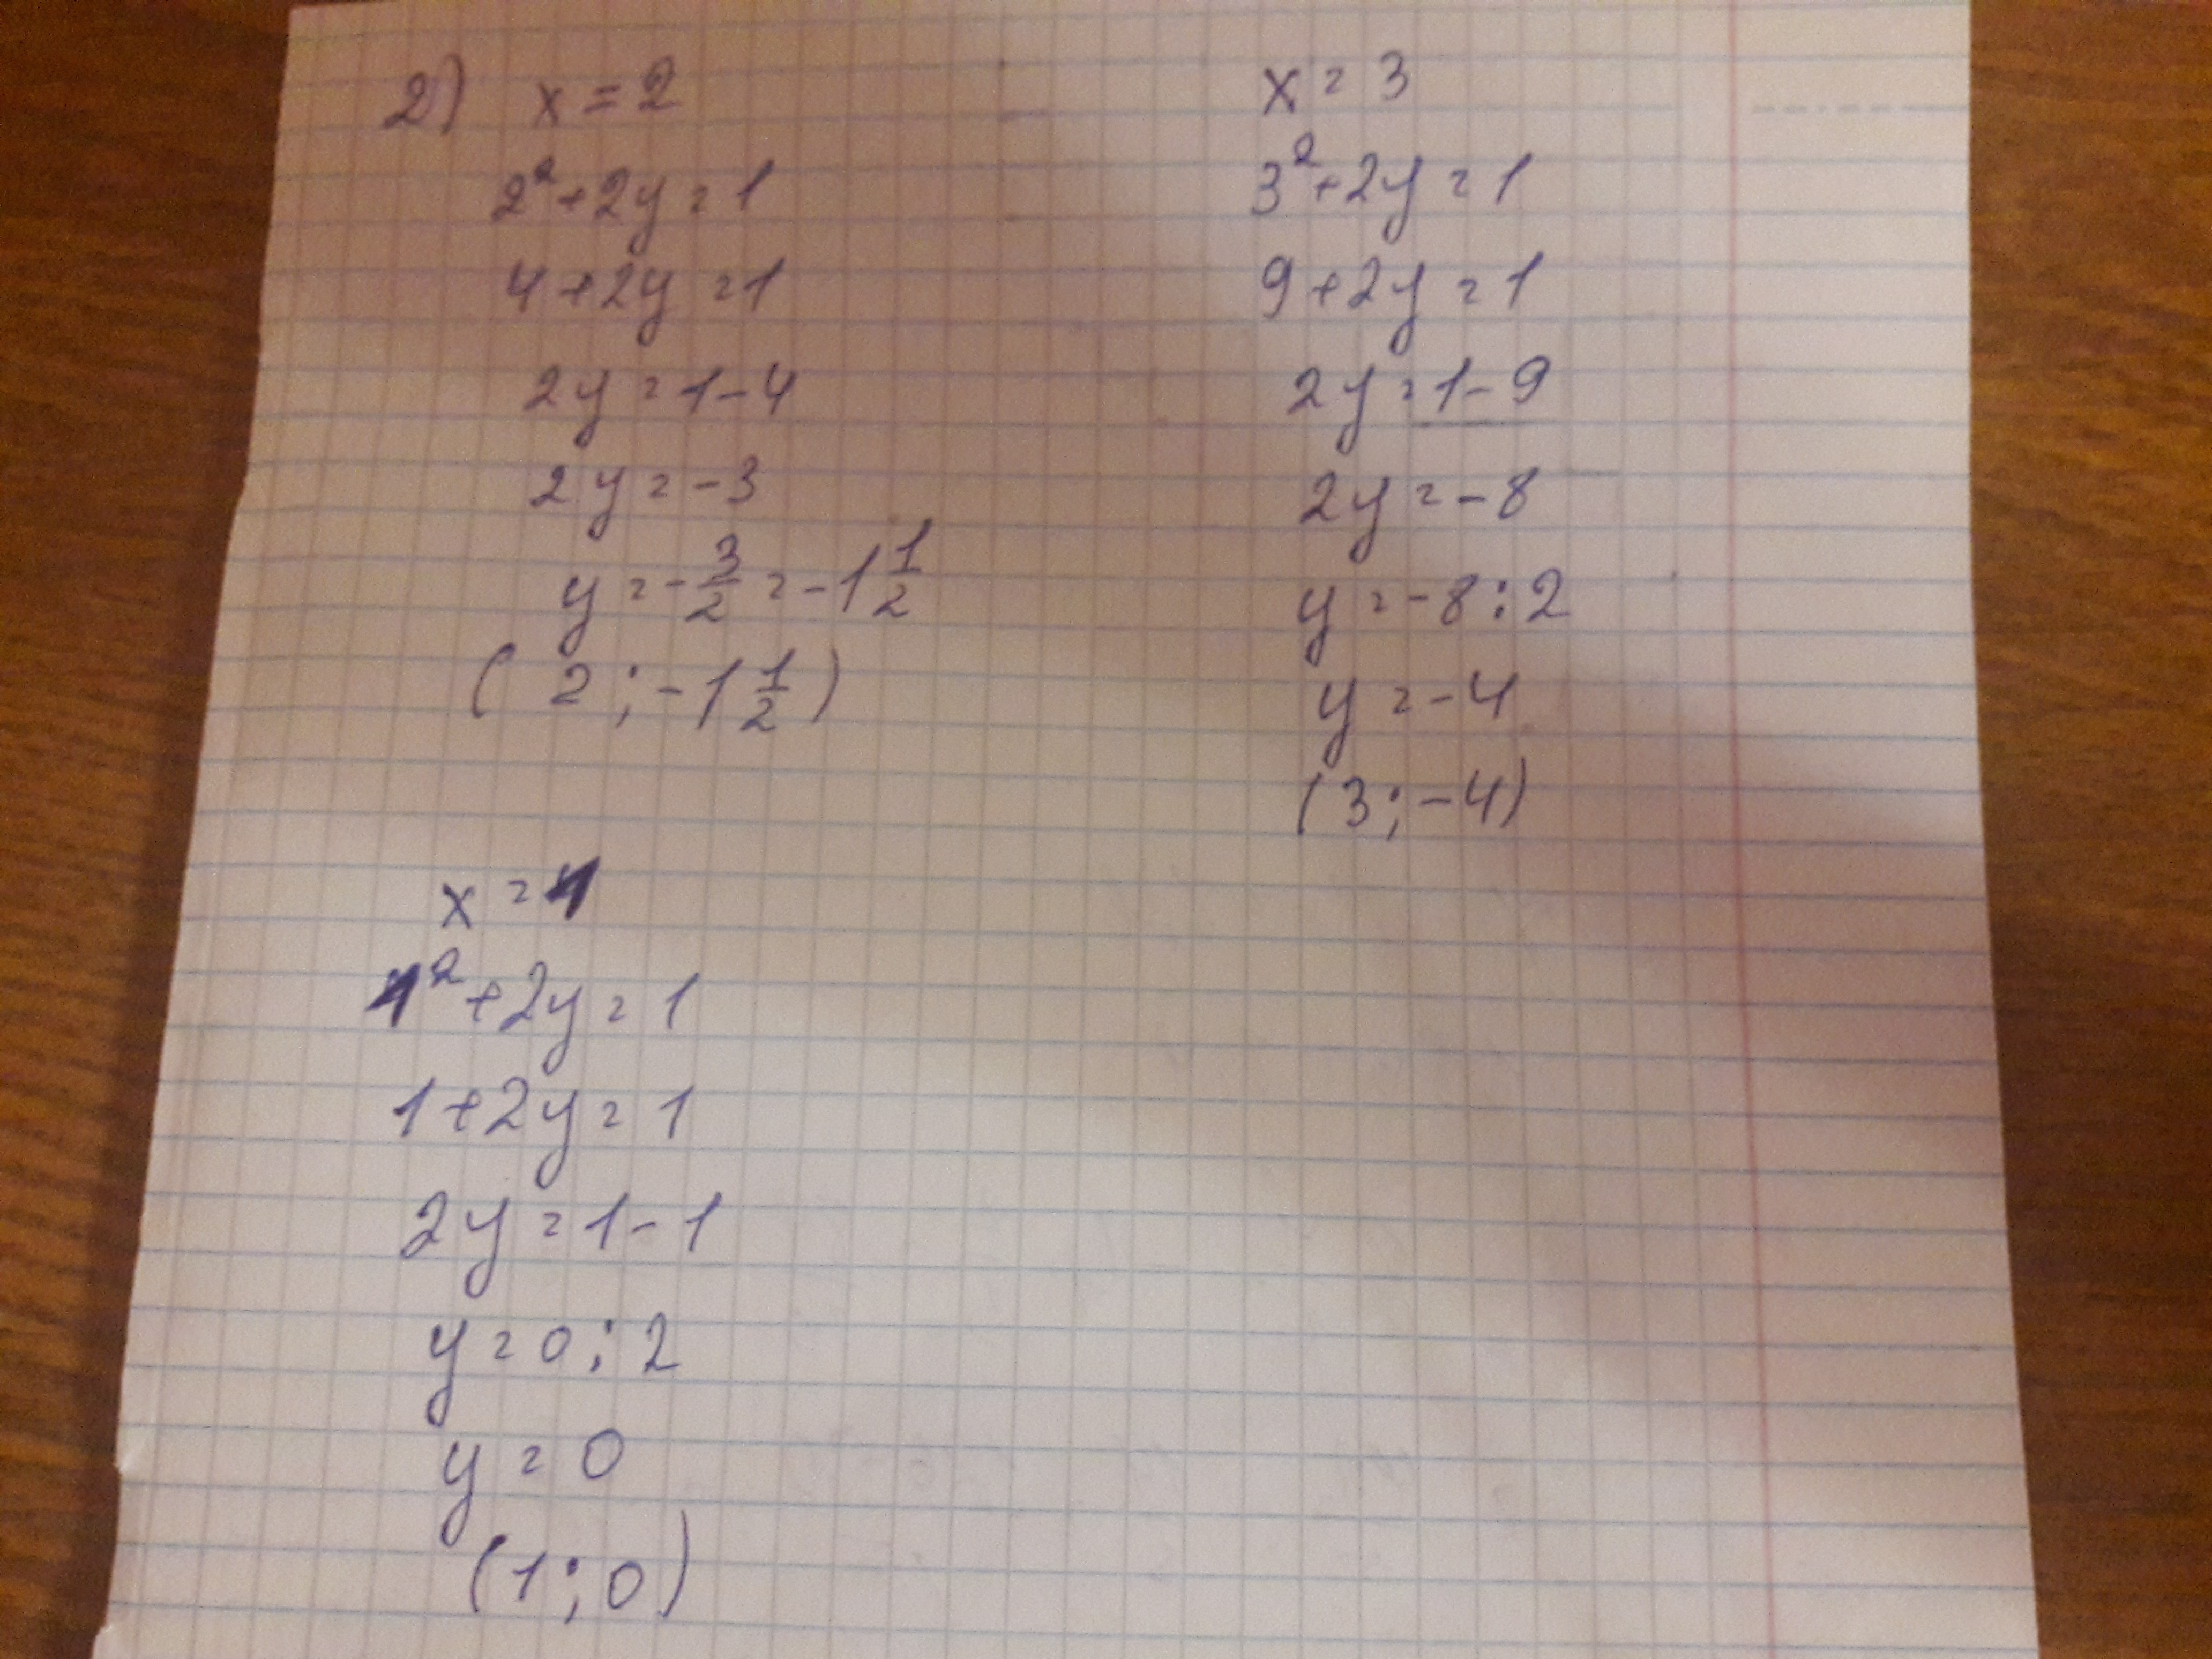 2) x = 2
2² + 2y = 1
4 + 2y = 1
2y = 1 - 4
2y = -3
y = -3/2 = -1 1/2
(2 ; -1 1/2)
x = 3
3² + 2y = 1
9 + 2y = 1
2y = 1 - 9
2y = -8
y = -8 : 2
y = -4
(3 ; -4)
x = 1
1² + 2y = 1
1 + 2y = 1
2y = 1 - 1
y = 0 : 2
y = 0
(1 ; 0)